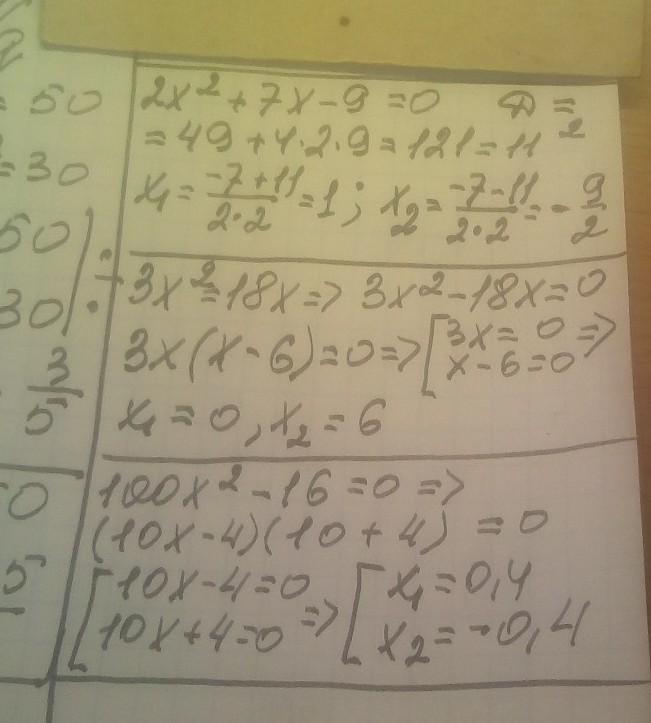 = 50
= 30
50
30
3/5
0
5
2x² + 7x - 9 = 0 D =
= 49 + 4·2·9 = 121 = 11²
x₁ = (-7+11)/(2·2) = 1; x₂ = (-7-11)/(2·2) = -9/2
3x² = 18x => 3x² - 18x = 0
3x(x - 6) = 0 => [3x = 0 =>
x - 6 = 0
x₁ = 0, x₂ = 6
100x² - 16 = 0 =>
(10x - 4)(10 + 4) = 0
[10x - 4 = 0 => [x₁ = 0,4
10x + 4 = 0 x₂ = -0,4